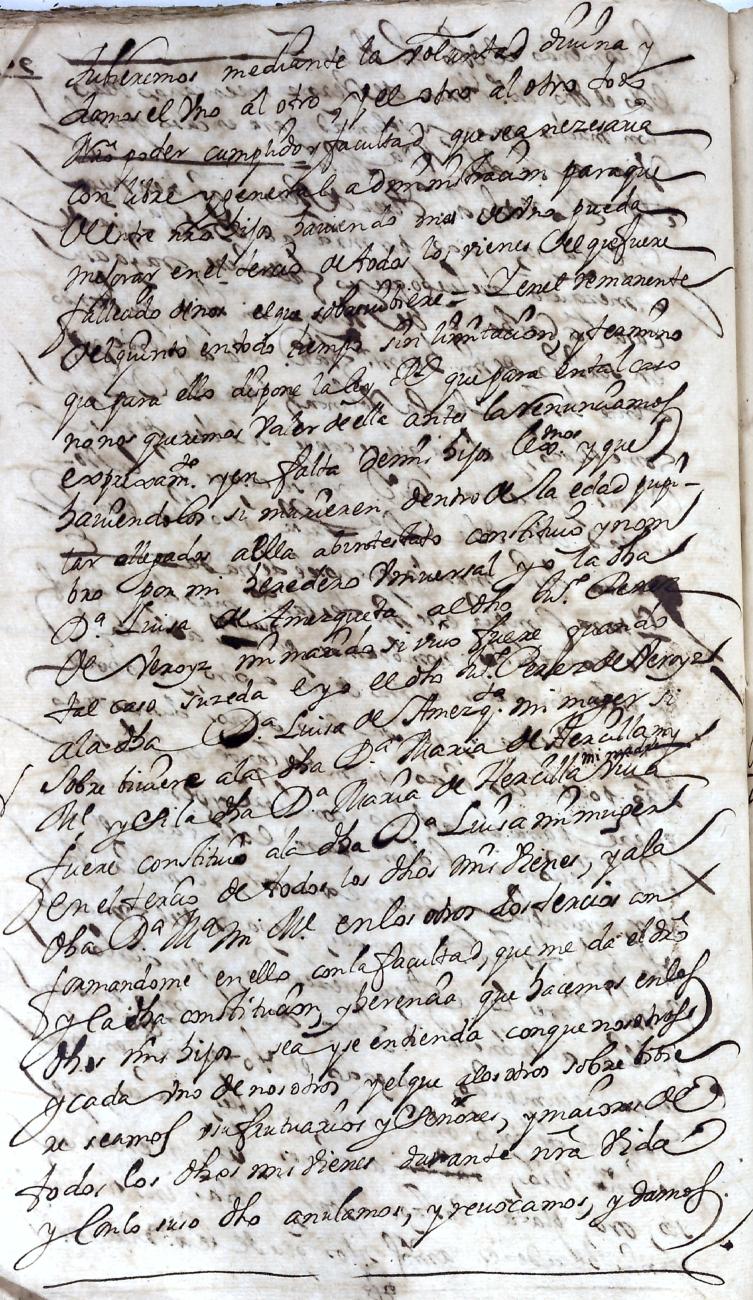 tubieremos mediante la voluntad divina y
damos el Uno al otro, y el otro al otro todo
nro poder cumplido y facultad que sea nezesaria
con libre y general administracion para que
entre nros hijos haviendo mas de Uno pueda
mejorar en el tercio de todos los vienes del que fuere
falleado de nos el que sobreviviere = Y en el remanente
del quinto en todo tiempo sin limitacion, y termino
que para ello dispone la ley que para en tal caso
no nos queremos Valer de ella antes la renunciamos
expresamte. y en falta de mis hijos lexmos y que
haviendolos si murieren dentro de la edad pupi-
lar o llegados a ella abintestato constituio y nom
bro por mi heredero Universal yo la dha
Da Luisa de Amezqueta al dho Perez
de Veroyz mi marido si vivo fuere quando
tal caso suzeda e yo el dho Perez de Veroyz
a la dha Da Luisa de Amezqta. mi muger si
sobre biviere a la dha Da Maria de Hercilla my
Me. y si la dha Da Maria de Hercilla mi madre viva
fuere constituio a la dha Da Luisa mi muger
en el tercio de todos los dhos mis vienes, y a la
dha Da Ma mi Me. en los otros dos tercios con
formandome en ello con la facultad, que me da el dro
y la dha constitucion, y herencia que hacemos en los
dhos mis hijos sea y se entienda con que nosotros
y cada Uno de nosotros y el que a los otros sobre bibie
re seamos usufrutuarios y Señores, y maiores de
todos los dhos mis vienes durante nra Vida
y con lo suso dho anulamos, y revocamos, y damos